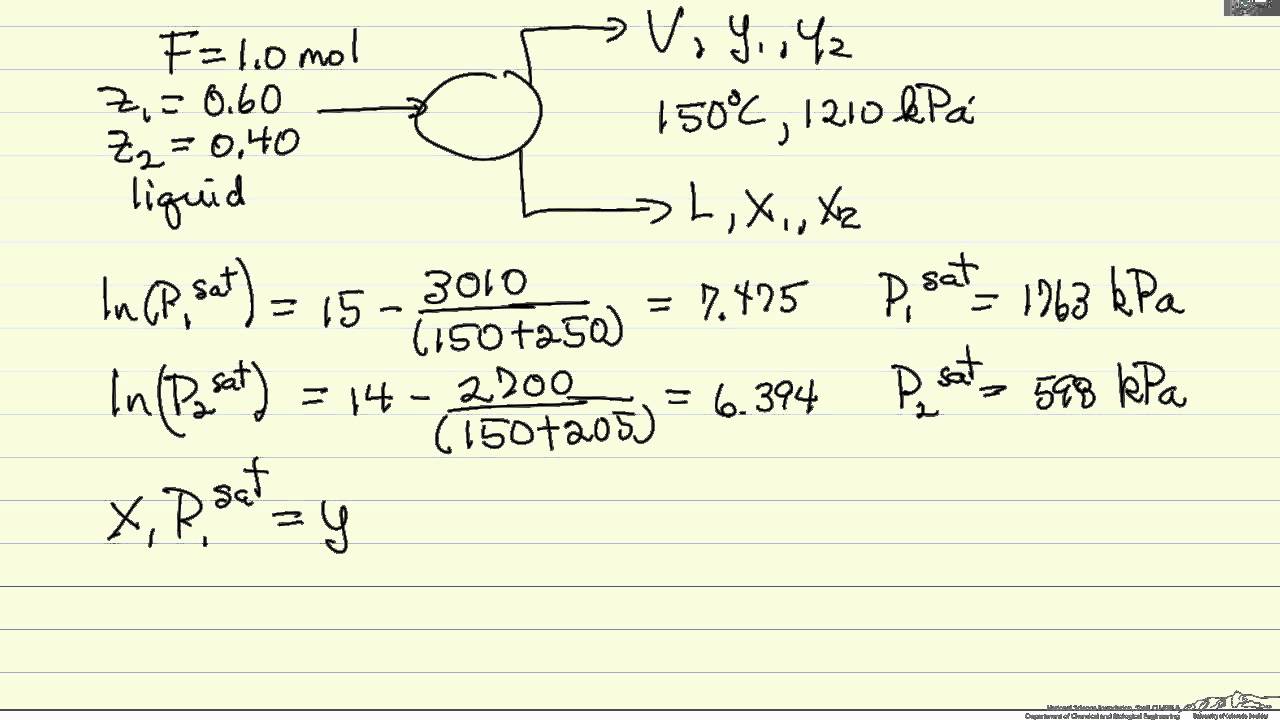 F = 1.0 mol
z₁ = 0.60
z₂ = 0.40
liquid
V, y₁, y₂
150°C, 1210 kPa
L, x₁, x₂
ln(P₁ˢᵃᵗ) = 15 - 3010/(150+250) = 7.475 P₁ˢᵃᵗ = 1763 kPa
ln(P₂ˢᵃᵗ) = 14 - 2700/(150+205) = 6.394 P₂ˢᵃᵗ = 598 kPa
x₁P₁ˢᵃᵗ = y
Department of Chemical and Biological Engineering
University of Colorado Boulder